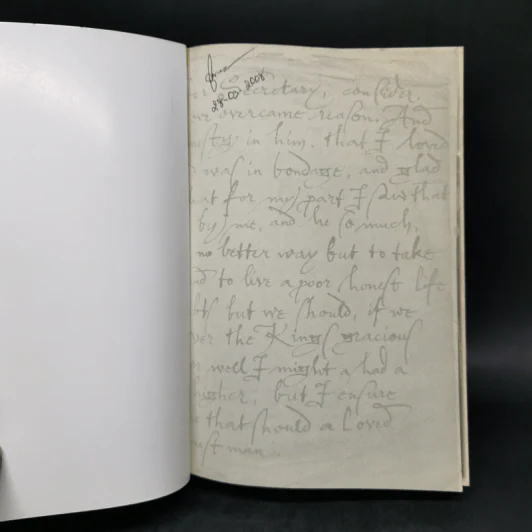 28-03-2008
Secretary, consider,
overcame reason. And
in him. that I loved
was in bondage, and glad
for my part I saw that
by me, and he so much,
no better way but to take
to live a poor honest life
but we should, if we
the Kings gracious
well I might a had a
, but I ensure
that should a loved
man.